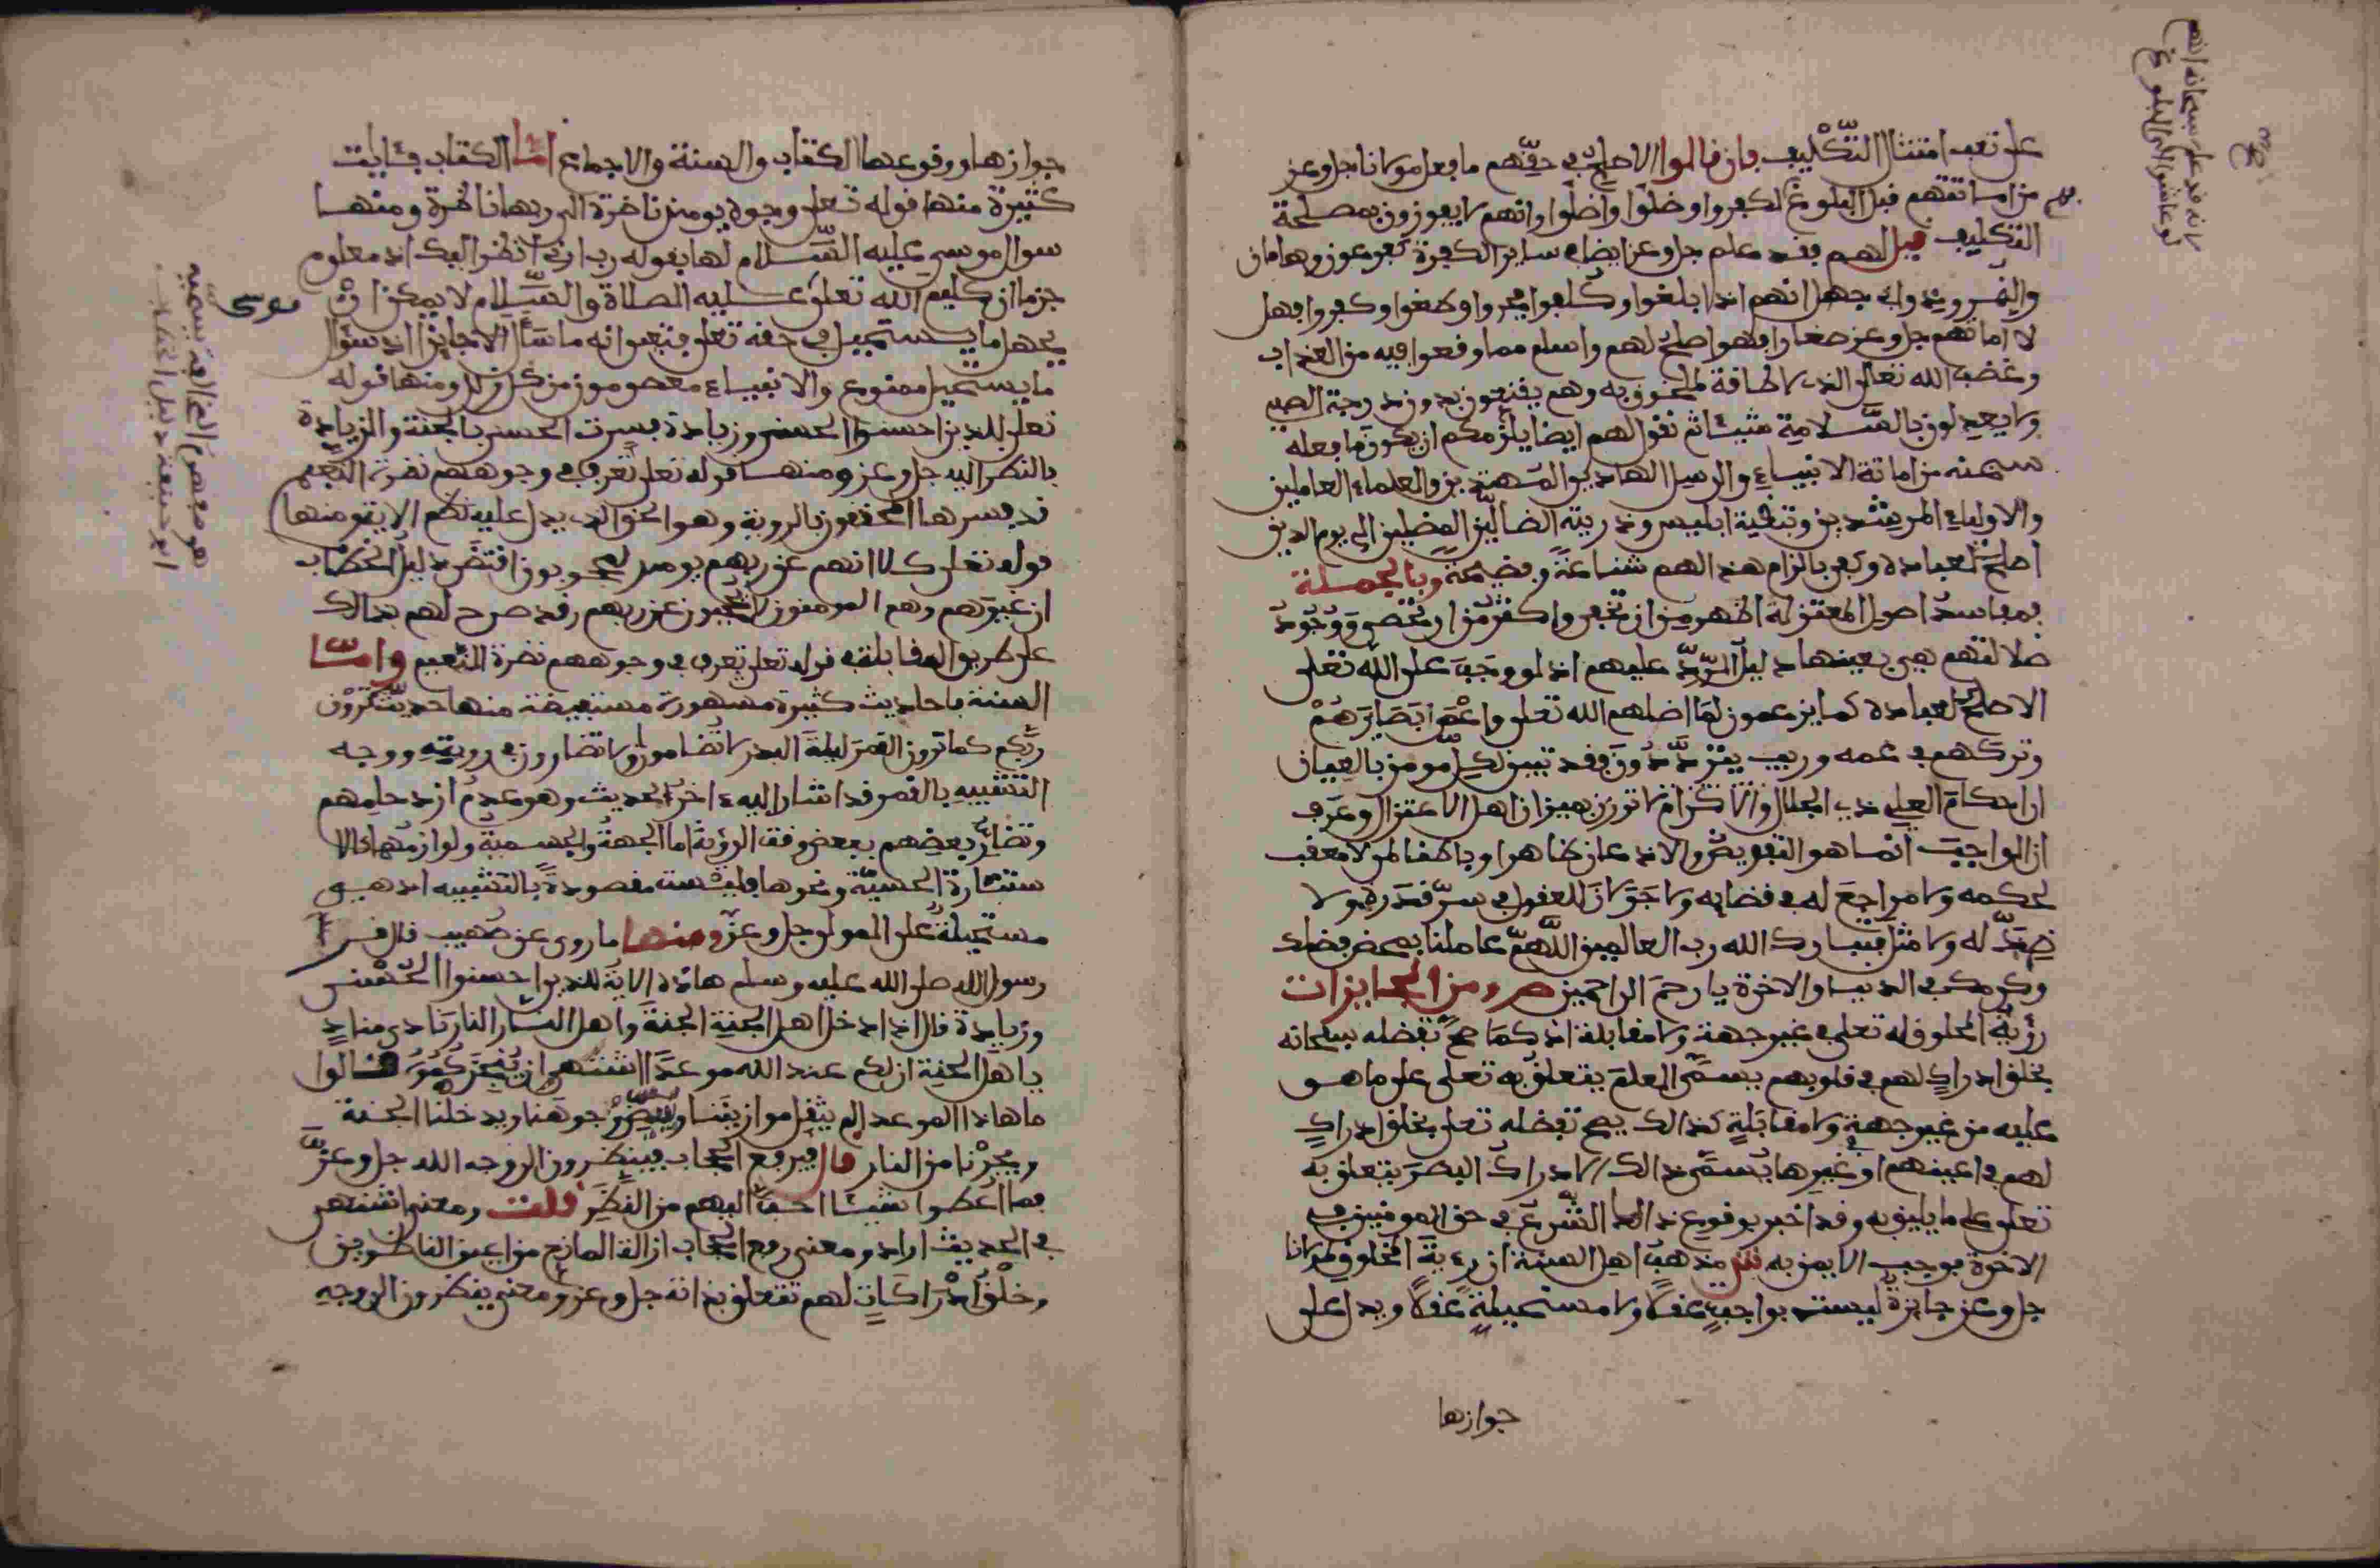 على تعب امتثال التكليف فان قالوا الاصلح في حقهم ما فعل مولانا جل وعز
بهم من اماتتهم قبل البلوغ لكفروا وضلوا واضلوا وانهم لا يفوزون بمصلحة
التكليف قيل لهم فقد علم جل وعز ايضا في ساير الكفرة كفرعون وهامان
والنمرود وابي جهل انهم اذا بلغوا وكلفوا فجروا وطغوا وكفروا فهل
لا اماتهم جل وعز صغارا فهو اصلح لهم واسلم مما وقعوا فيه من العذاب
وغضب الله تعالى الذي لا طاقة لمخلوق به وهم يقنعون بدون درجة الصبي
ولا يعدلون بالسلامة شيئا ثم نقول لهم ايضا يلزمكم ان يكون ما فعله
سبحنه من اماتة الانبياء والرسل الهادين المهتدين والعلماء العاملين
والاولياء المرشدين وتبقية ابليس وذريته الضالين المضلين الى يوم الدين
اصلح لعباده وكفى بالزام هذا لهم شناعة وفضيحة وبالجملة
فمفاسد اصول المعتزلة اظهر من ان تخفى واكثر من ان تحصى ووجود
ضلالتهم هي بعينها دليل الرد عليهم اذ لو وجب على الله تعلى
الاصلح لعباده كما يزعمون لما اضلهم الله تعلى واعمى ابصايرهم
وتركهم في عمه وريب يترددون فقد تبين لكل مومن بالعيان
ان احكام العلي ذي الجلال والاكرام لا توزن بميزان اهل الاعتزال وعرف
ان الواجب انما هو التفويض والاذعان ظاهرا وباطنا لمن لا معقب
لحكمه ولا مراجع له في قضايه ولا جولان للعقول في سر قدره ولا
ضد له ولا مثل فتبارك الله رب العالمين اللهم عاملنا بمحض فضلك
وكرمك في الدنيا والاخرة يا رحم الراحمين ص ومن الجايزات
رؤية المخلوق له تعلى في غير جهة ولا مقابلة اذ كما صح تفضله سبحانه
بخلق ادراك لهم في قلوبهم يسمى العلم يتعلق به تعلى على ما هو
عليه من غير جهة ولا مقابلة كذالك يصح تفضله تعلى بخلق ادراك
لهم في اعينهم او في غيرها يسمى ذالك الادراك البصر يتعلق به
تعلى على ما يليق به وقد اخبر بوقوع ذالك الشرع في حق المومنين في
الاخرة فوجب الايمن به ش مذهب اهل السنة ان رءية المخلوق لمولانا
جل وعز جايزة ليست بواجبة عقلا ولا مستحيلة عقلا ويدل على
جوازها
لانه قد علم سبحانه انهم
لو عاشوا الى البلوغ
صح
جوازها ووقوعها الكتاب والسنة والاجماع اما الكتاب فئايت
كثيرة منها قوله تعلى وجوه يومئذ ناضرة الى ربها ناظرة ومنها
سوال موسى عليه السلام لها بقوله رب ارني انظر اليك اذ معلوم
جزما ان كليم الله تعلى عليه الصلاة والسلام لا يمكن ان
يجهل ما يستحيل في حقه تعلى فتعين انه ما سأل الا جايزا اذ سؤال
ما يستحيل ممنوع والانبياء معصومون من كل زلل ومنها قوله
تعلى للذين احسنوا الحسنى وزيادة فسرت الحسنى بالجنة والزيادة
بالنظر اليه جل وعز ومنها قوله تعلى تعرف في وجوههم نضرة النعيم
قد فسرها المحققون بالروية وهو الحق الذي يدل عليه نظم الاي ومنها
قوله تعلى كلا انهم عن ربهم يومئذ لمحجوبون اقتضى دليل الخطاب
ان غيرهم وهم المومنون لا يحجبون عن ربهم وقد صرح لهم بذالك
على طريق المقابلة في قوله تعلى تعرف في وجوههم نضرة النعيم واما
السنة فاحاديث كثيرة مشهورة مستفيضة منها حديث ترون
ربكم كما ترون القمر ليلة البدر لا تضامون ولا تضارون في رويته ووجه
التشبيه بالقمر قد اشار اليه ءاخر الحديث وهو عدم ازدحامهم
وتضار بعضهم ببعض وقت الرؤية اما الجهة والجسمية ولوازمهما كالا
ستنارة الحسية ونحوها فليست مقصودة بالتشبيه اذ هي
مستحيلة على المولى جل وعز ومنها ما روي عن صهيب قال قرأ
رسول الله صلى الله عليه وسلم هاذه الاية للذين احسنوا الحسنى
وزيادة قال اذا دخل اهل الجنة الجنة واهل النار النار نادى مناد
يا اهل الجنة ان لكم عند الله موعدا اشتهى ان ينجزكموه قالوا
ما هاذا الموعد الم يثقل موازيننا ويبيض وجوهنا ويدخلنا الجنة
ويجرنا من النار قال فيرفع الحجاب فينظرون الى وجه الله جل وعز
فما اعطوا شيئا احب اليهم من النظر قلت ومعنى اشتهى
في الحديث اراد ومعنى رفع الحجاب ازالة المانع من اعين الناظرين
وخلق ادراكات لهم تتعلق بذاته جل وعز ومعنى ينظرون الى وجه
موسى
هو مفهوم المخالفة يسميه
ابو حنيفة دليل الخطاب